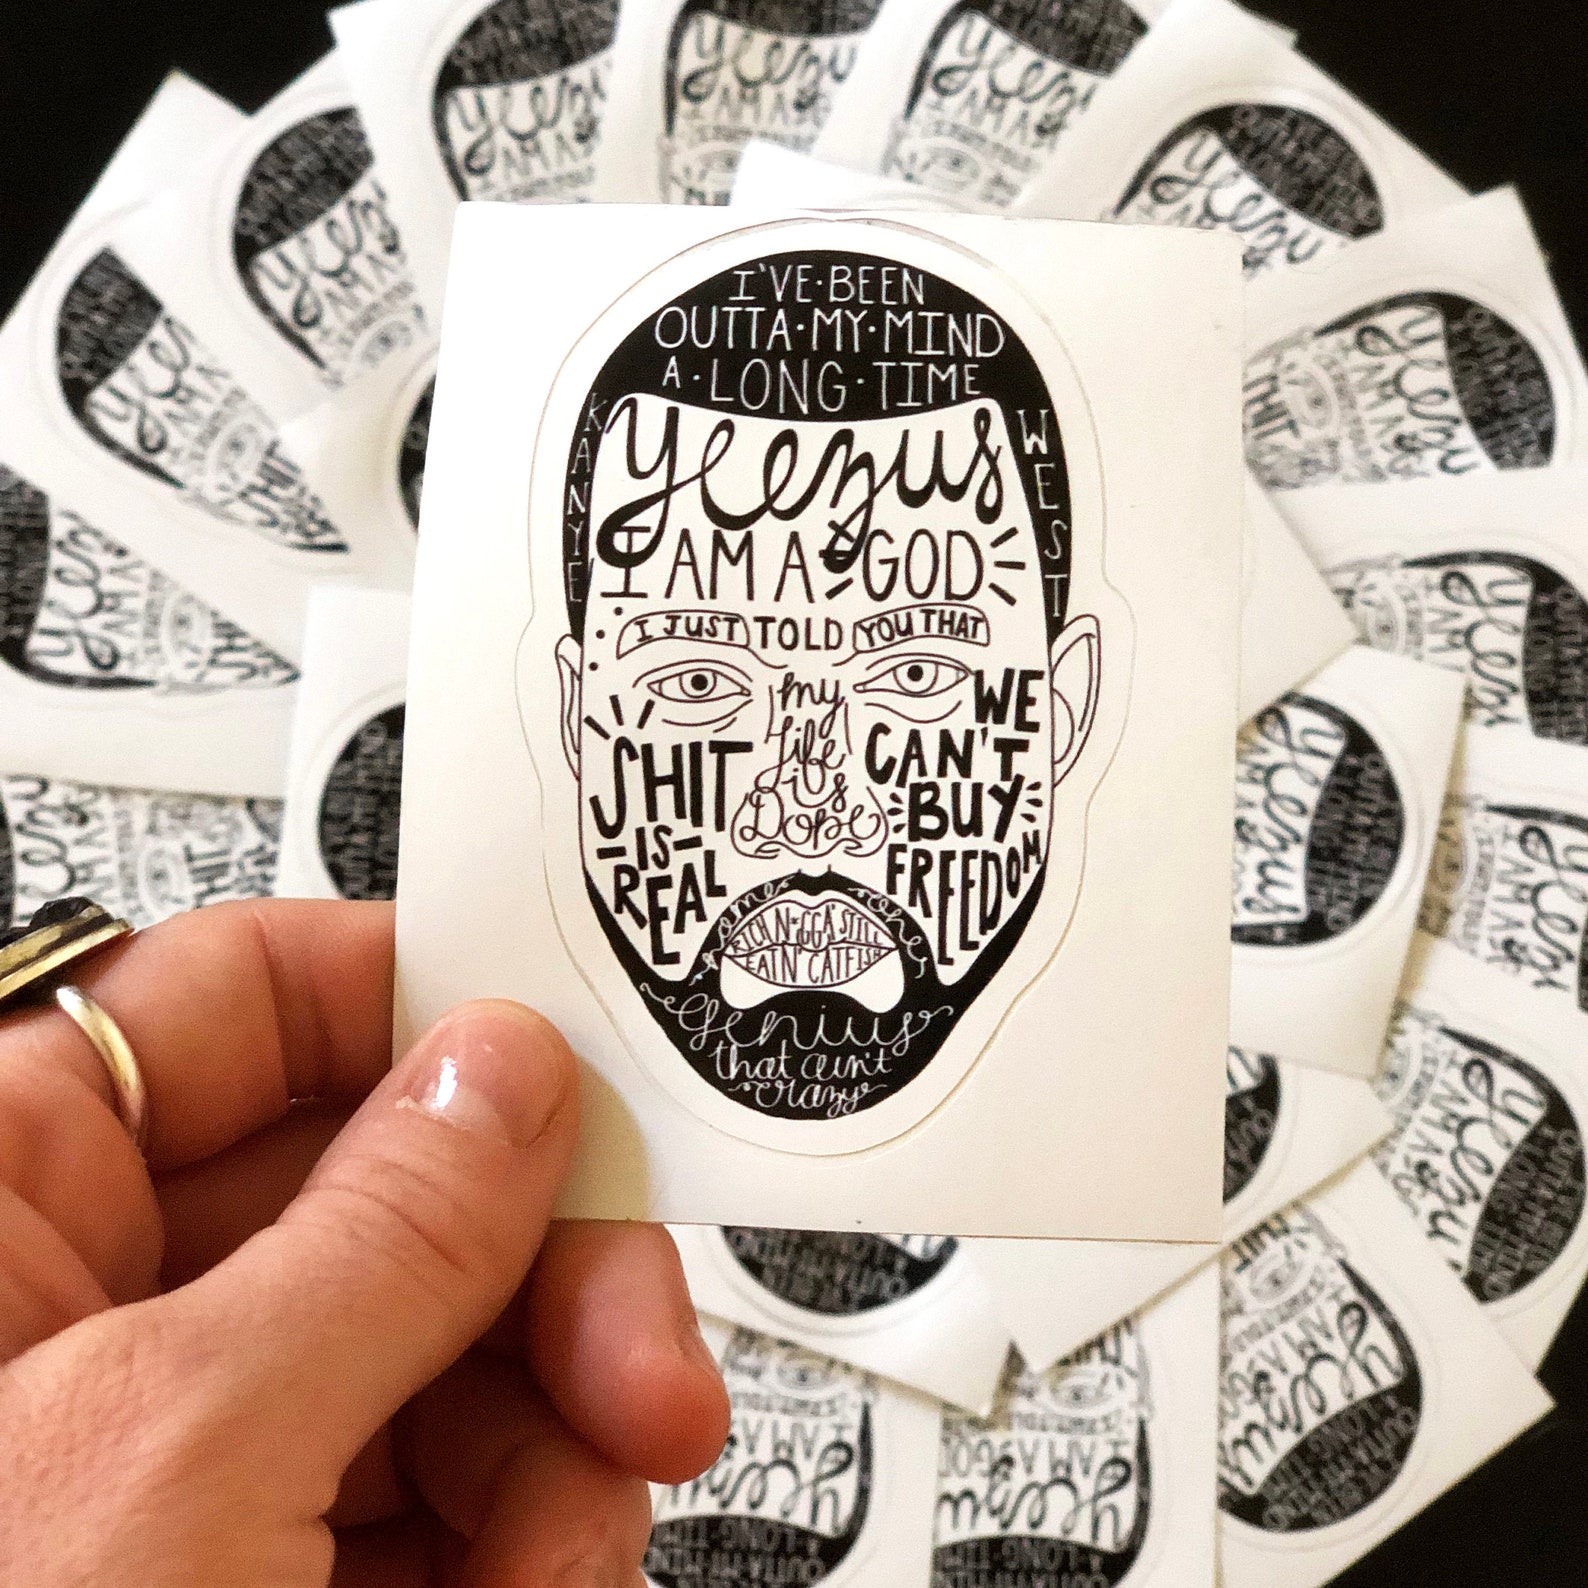 I'VE·BEEN
OUTTA·MY·MIND
A·LONG·TIME
KANYE
WEST
Yeezus
I AM A GOD
I JUST TOLD YOU THAT
SHIT
IS
REAL
my
life
is
Dope
WE
CAN'T
BUY
FREEDOM
name one
RICH N*GGA STILL
EATN' CATFISH
Genius
that ain't
crazy